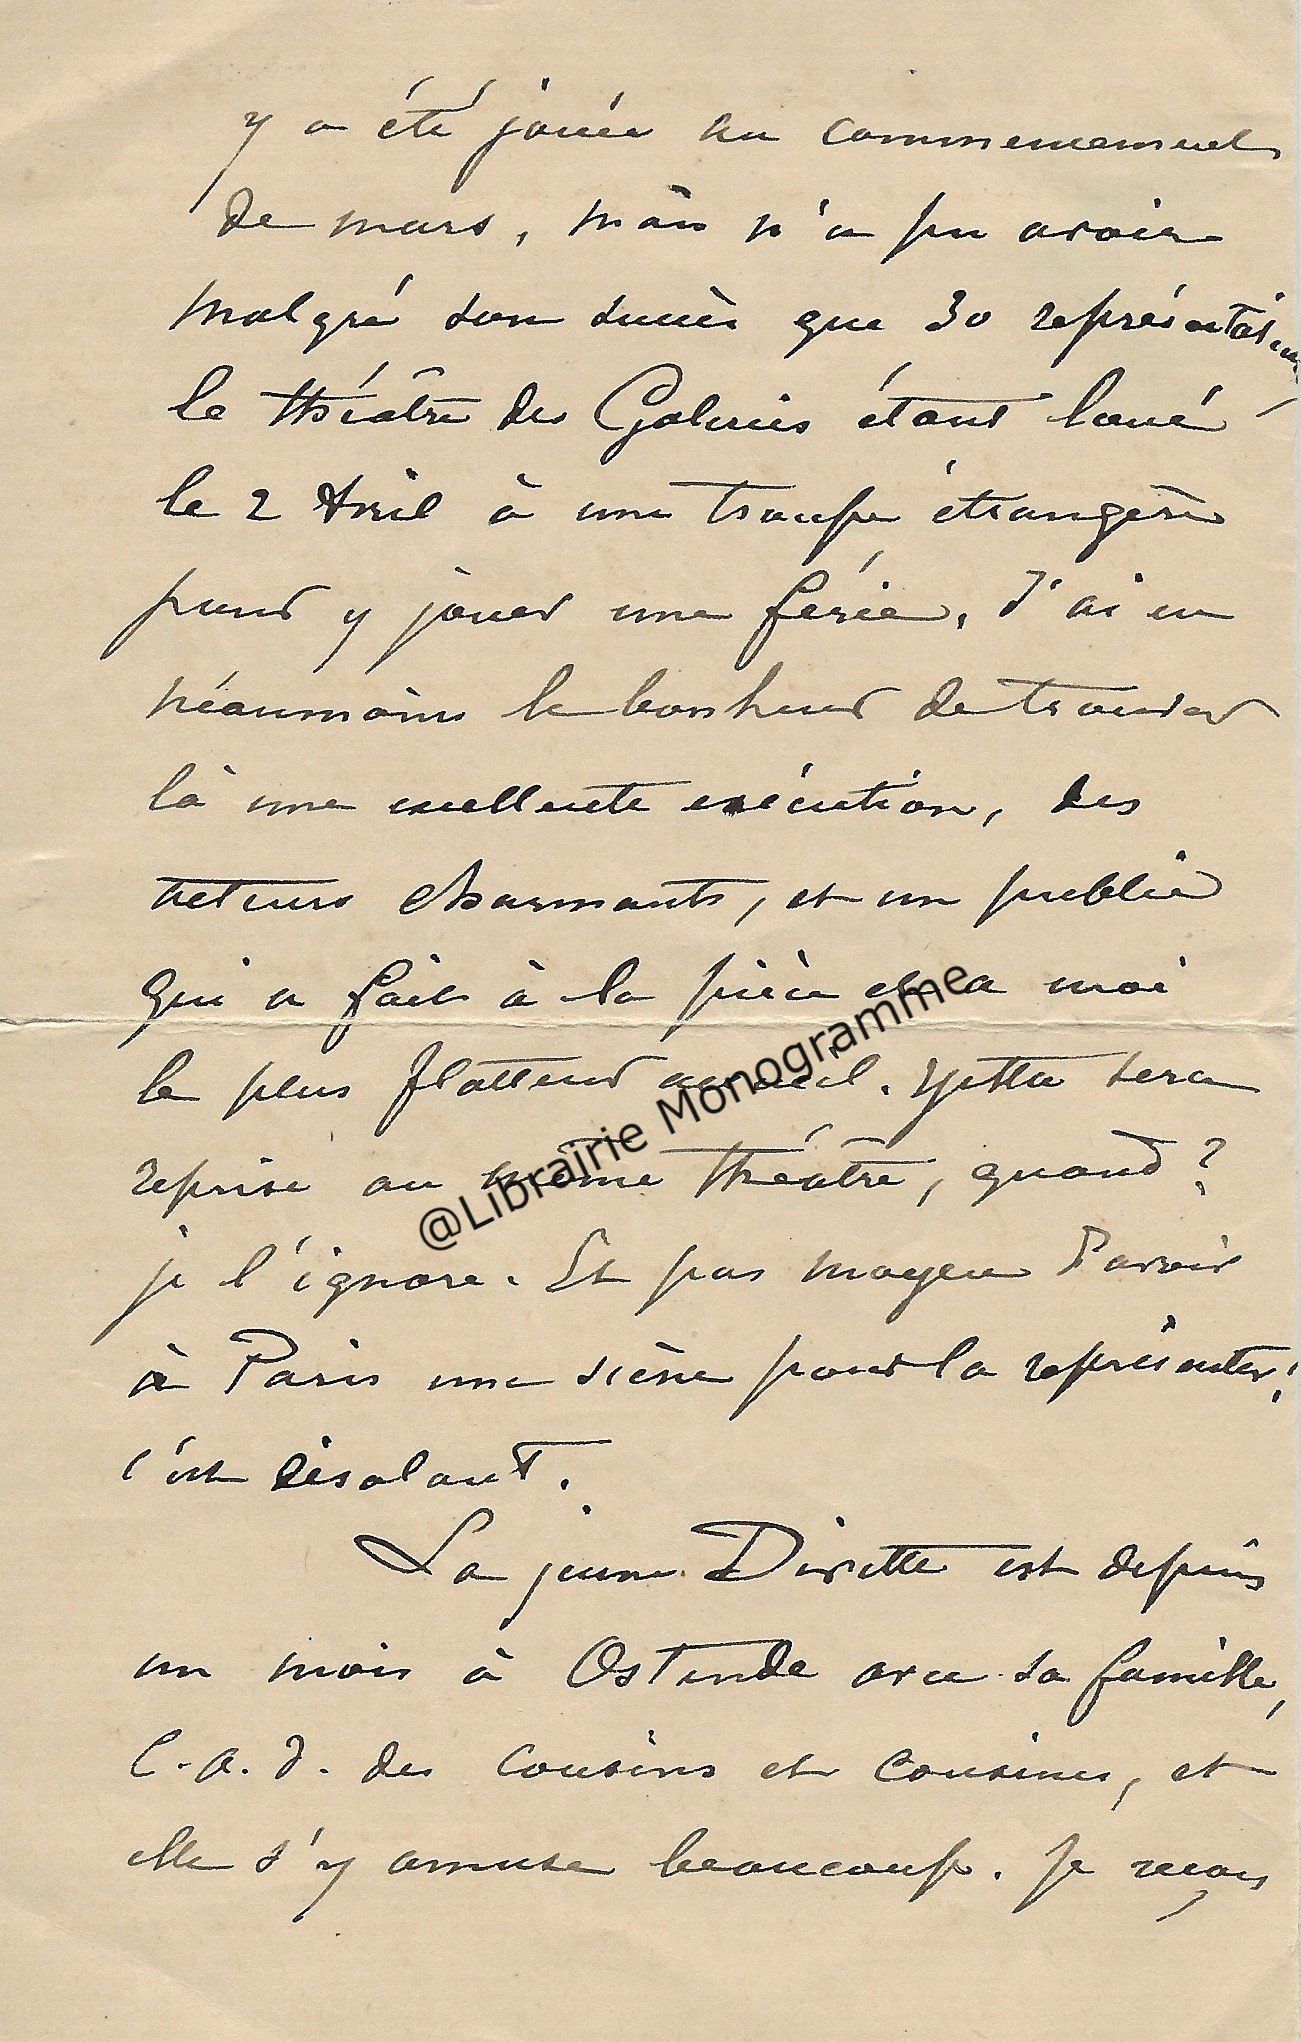 y a été jouée au commencement
de mars, mais n'a pu avoir
malgré son succès que 30 représentations
le théâtre des Galeries étant loué
le 2 Avril à une troupe étrangère
pour y jouer une férie. J'ai eu
néanmoins le bonheur de trouver
là une excellente exécution, des
acteurs charmants, et un public
qui a fait à la pièce et à moi
le plus flatteur accueil. Yetta sera
reprise au même théâtre, quand ?
je l'ignore. Et pas moyen d'avoir
à Paris une scène pour la représenter !
c'est désolant.
La jeune Divette est depuis
un mois à Ostende avec sa famille,
C.a.d. des cousins et cousines, et
elle s'y amuse beaucoup. Je reçois
@Librairie Monogramme